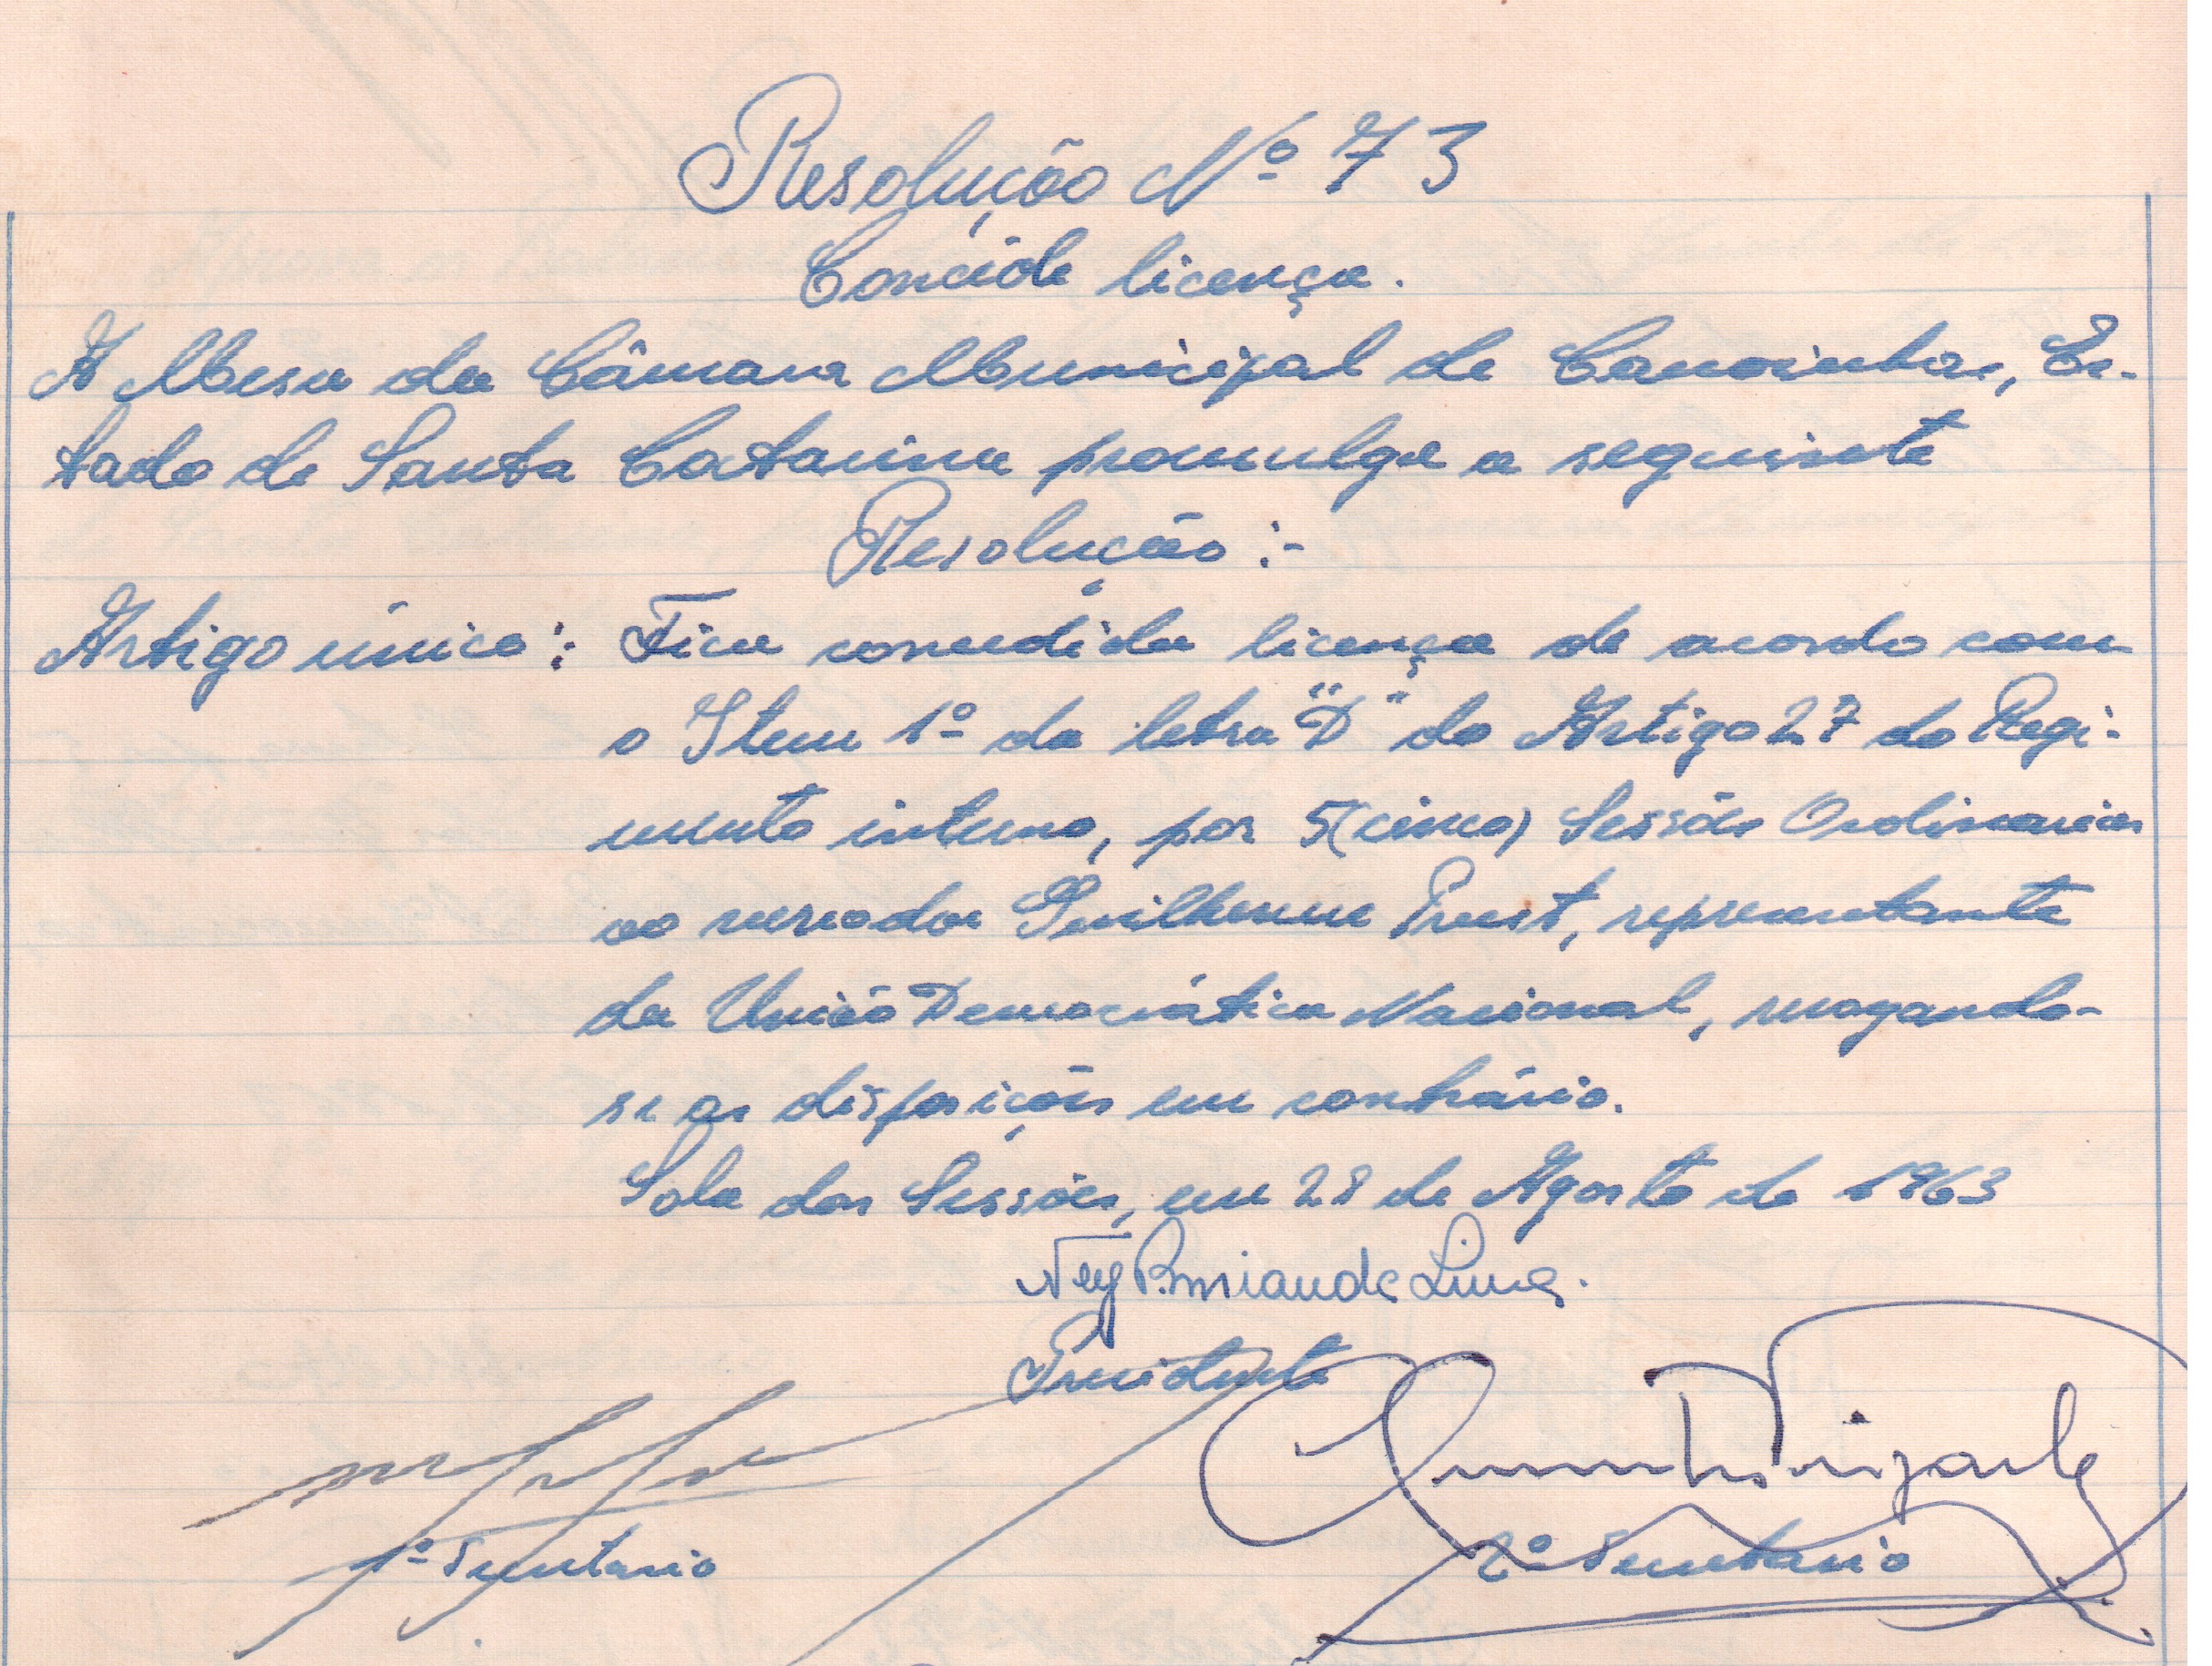 Resolução Nº 73
Concéde licença.
A Mesa da Câmara Municipal de Canoinhas, Es-
tado de Santa Catarina promulga a seguinte
Resolução :-
Artigo único : Fica concedida licença de acordo com
o Item 1º da letra "D" do Artigo 27 do Regi-
mento interno, por 5(cinco) Sessões Ordinarias
ao vereador Guilherme Prust, representante
da União Democrática Nacional, revogando-
se as disposições em contrário.
Sala das Sessões, em 28 de Agosto de 1963
Ney de Lima.
Presidente
1º Secretario
2º Secretario